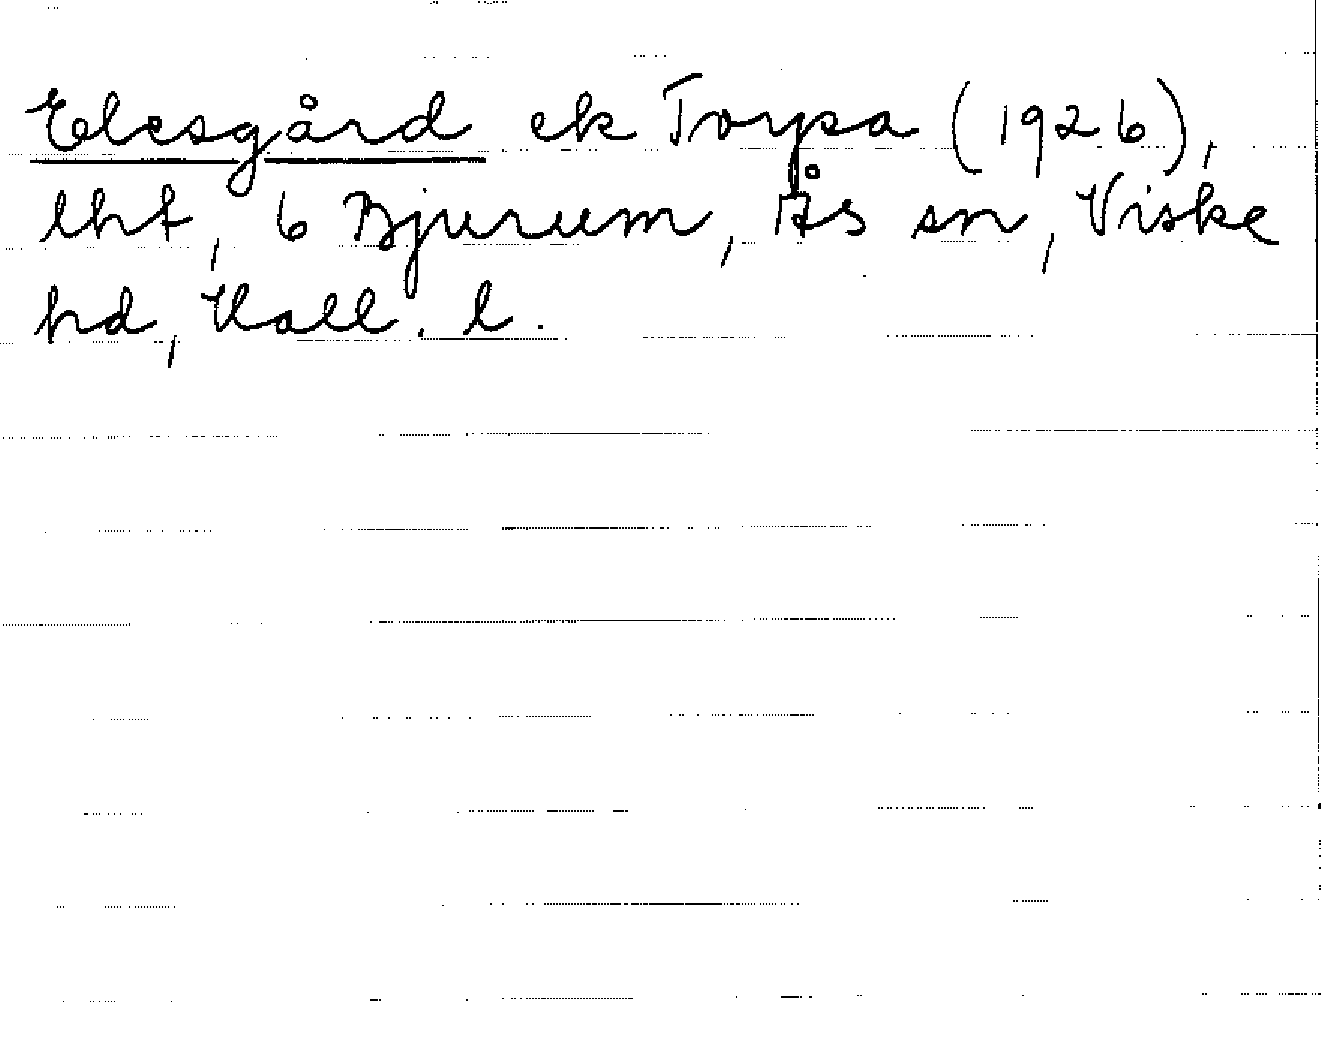 Elesgård ek Torpa (1926),
lht, 6 Bjurum, Ås sn, Viske
hd, Hall. l.